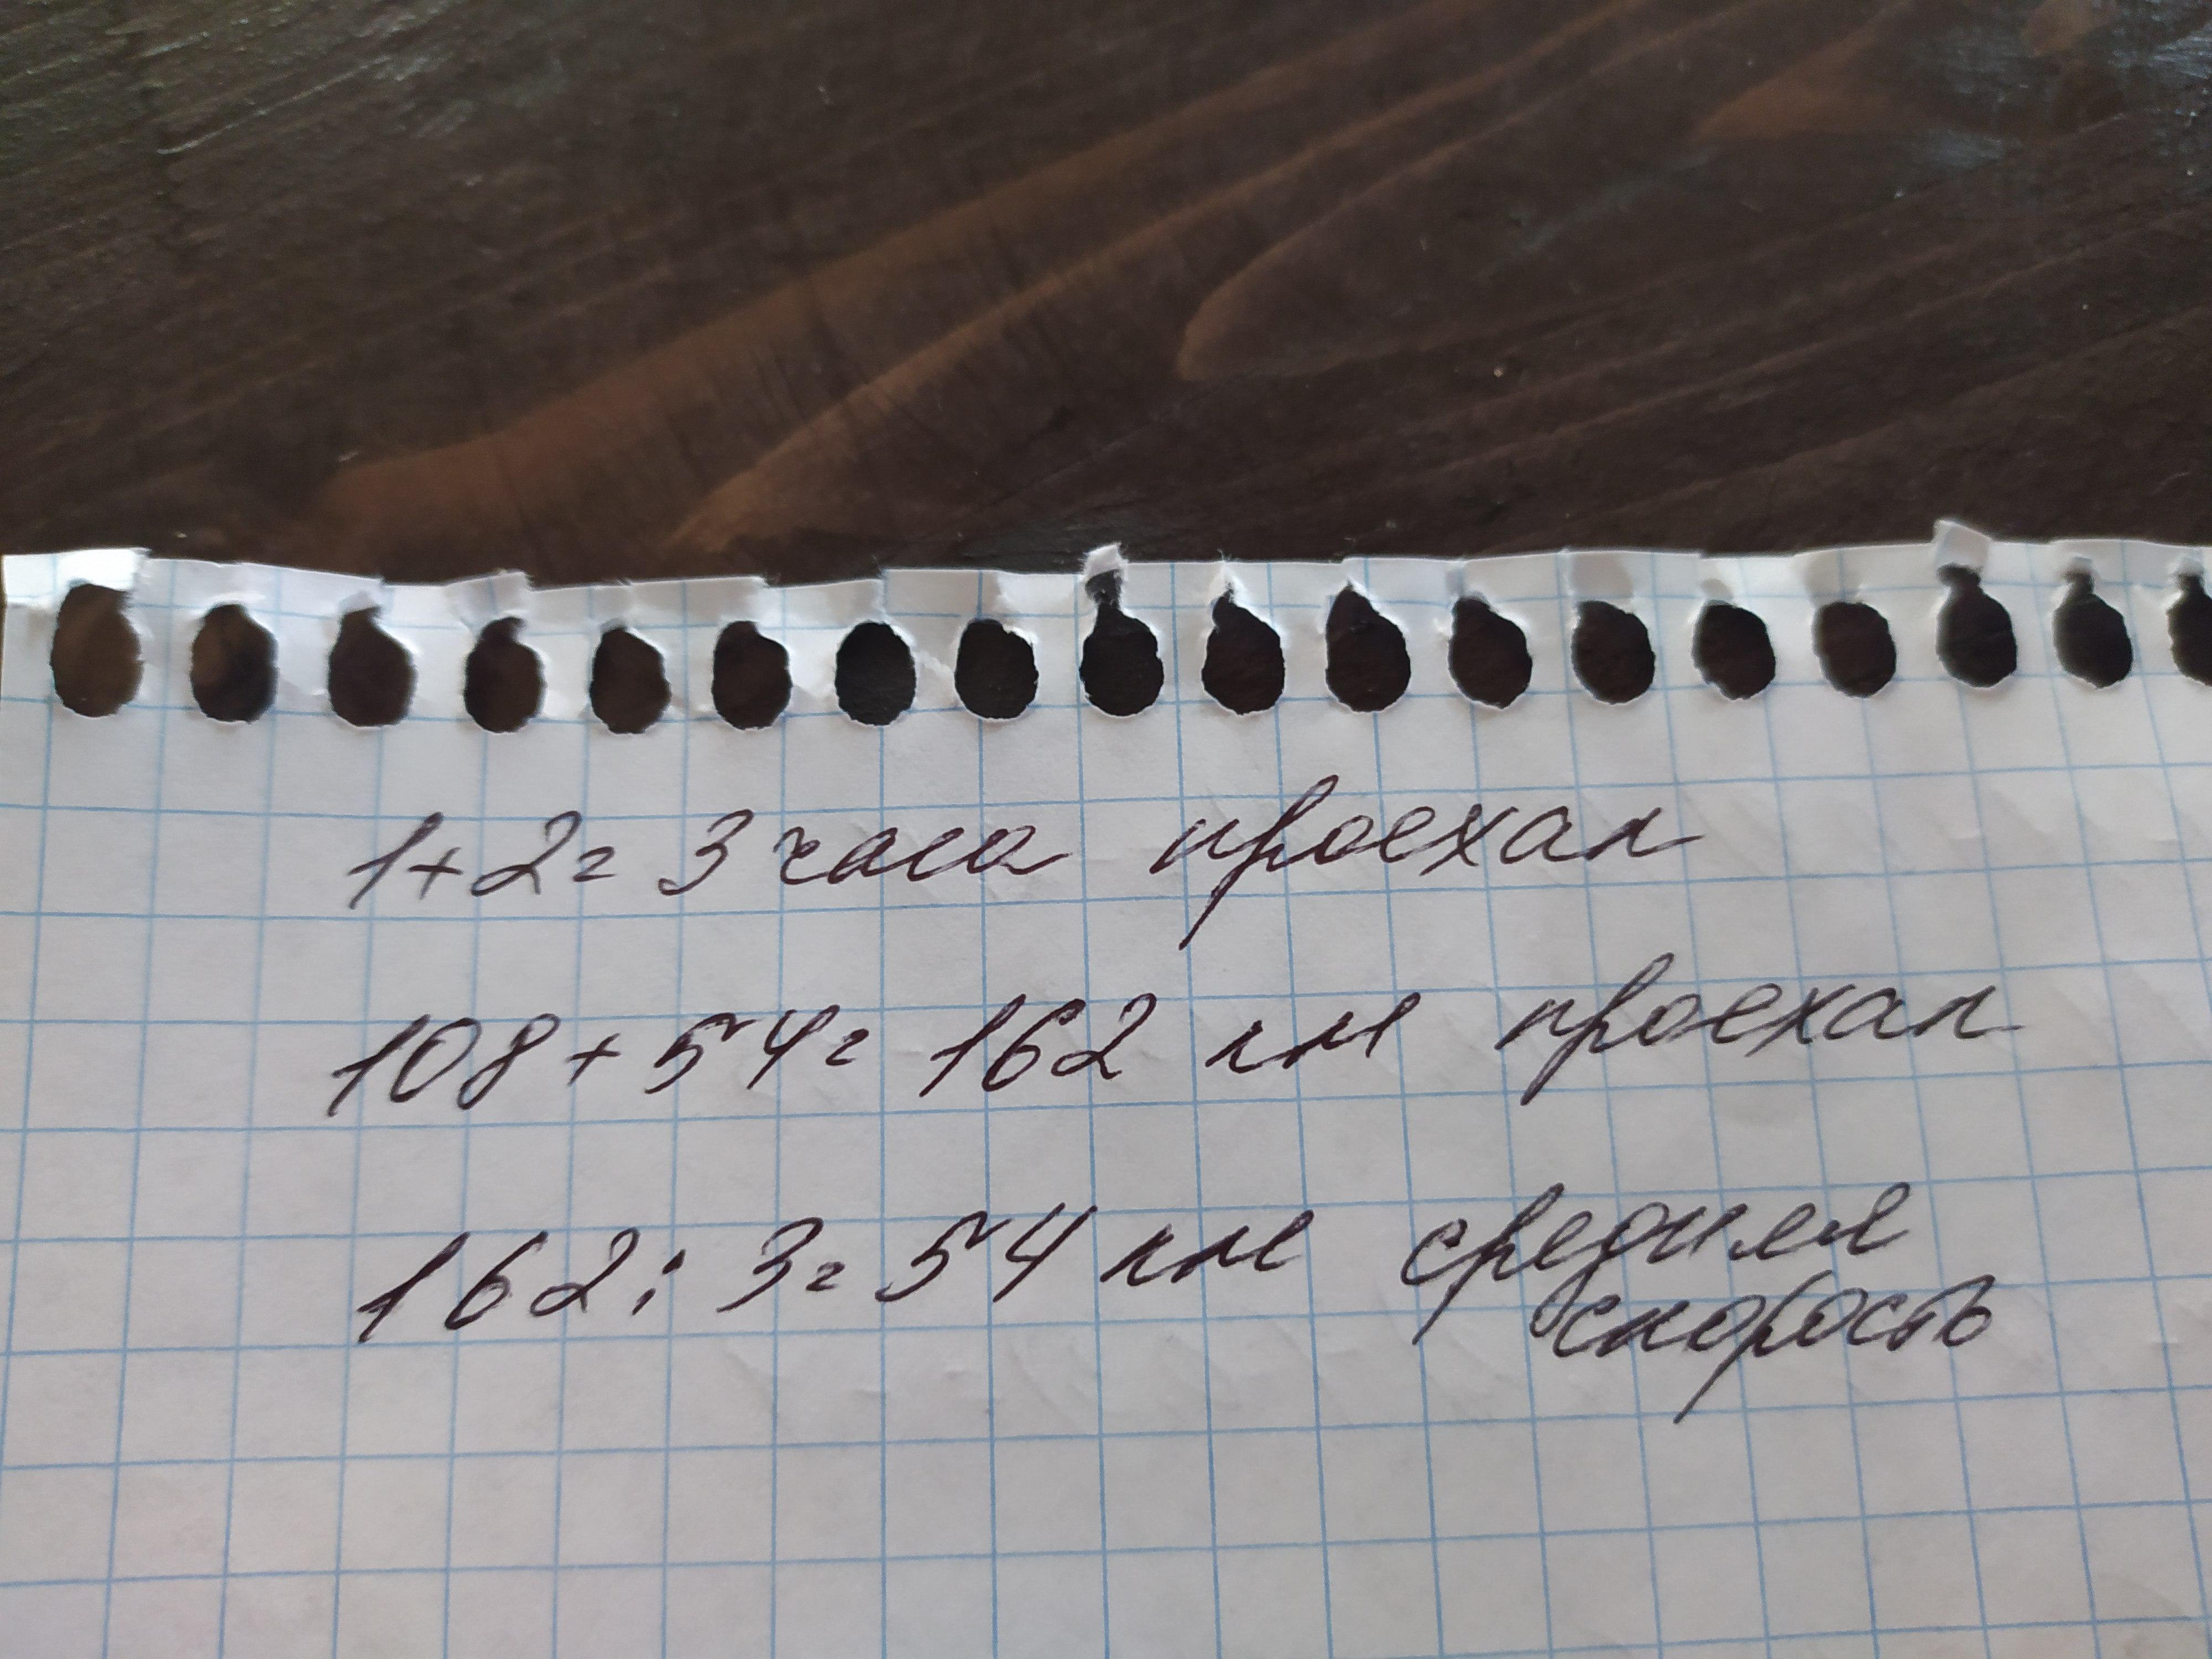 1+2= 3 часа проехал
108+54= 162 км проехал
162:3= 54 км средняя
скорость